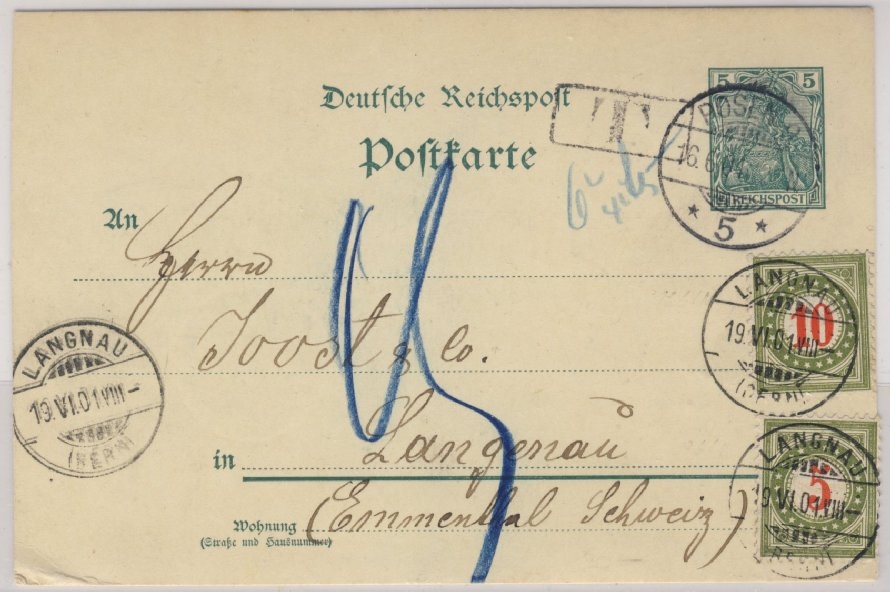 5 5
Deutsche Reichspost
T
POSEN
16.6.
* 5 *
REICHSPOST
Postkarte
An
Herrn
LANGNAU
19.VI.01.VIII—
(BERN)
10
Joost & Co.
LANGNAU
19.VI.01.VIII—
(BERN)
in Langenau
LANGNAU
19.VI.01.VIII—
(BERN)
5
Wohnung (Emmenthal Schweiz)
(Straße und Hausnummer)